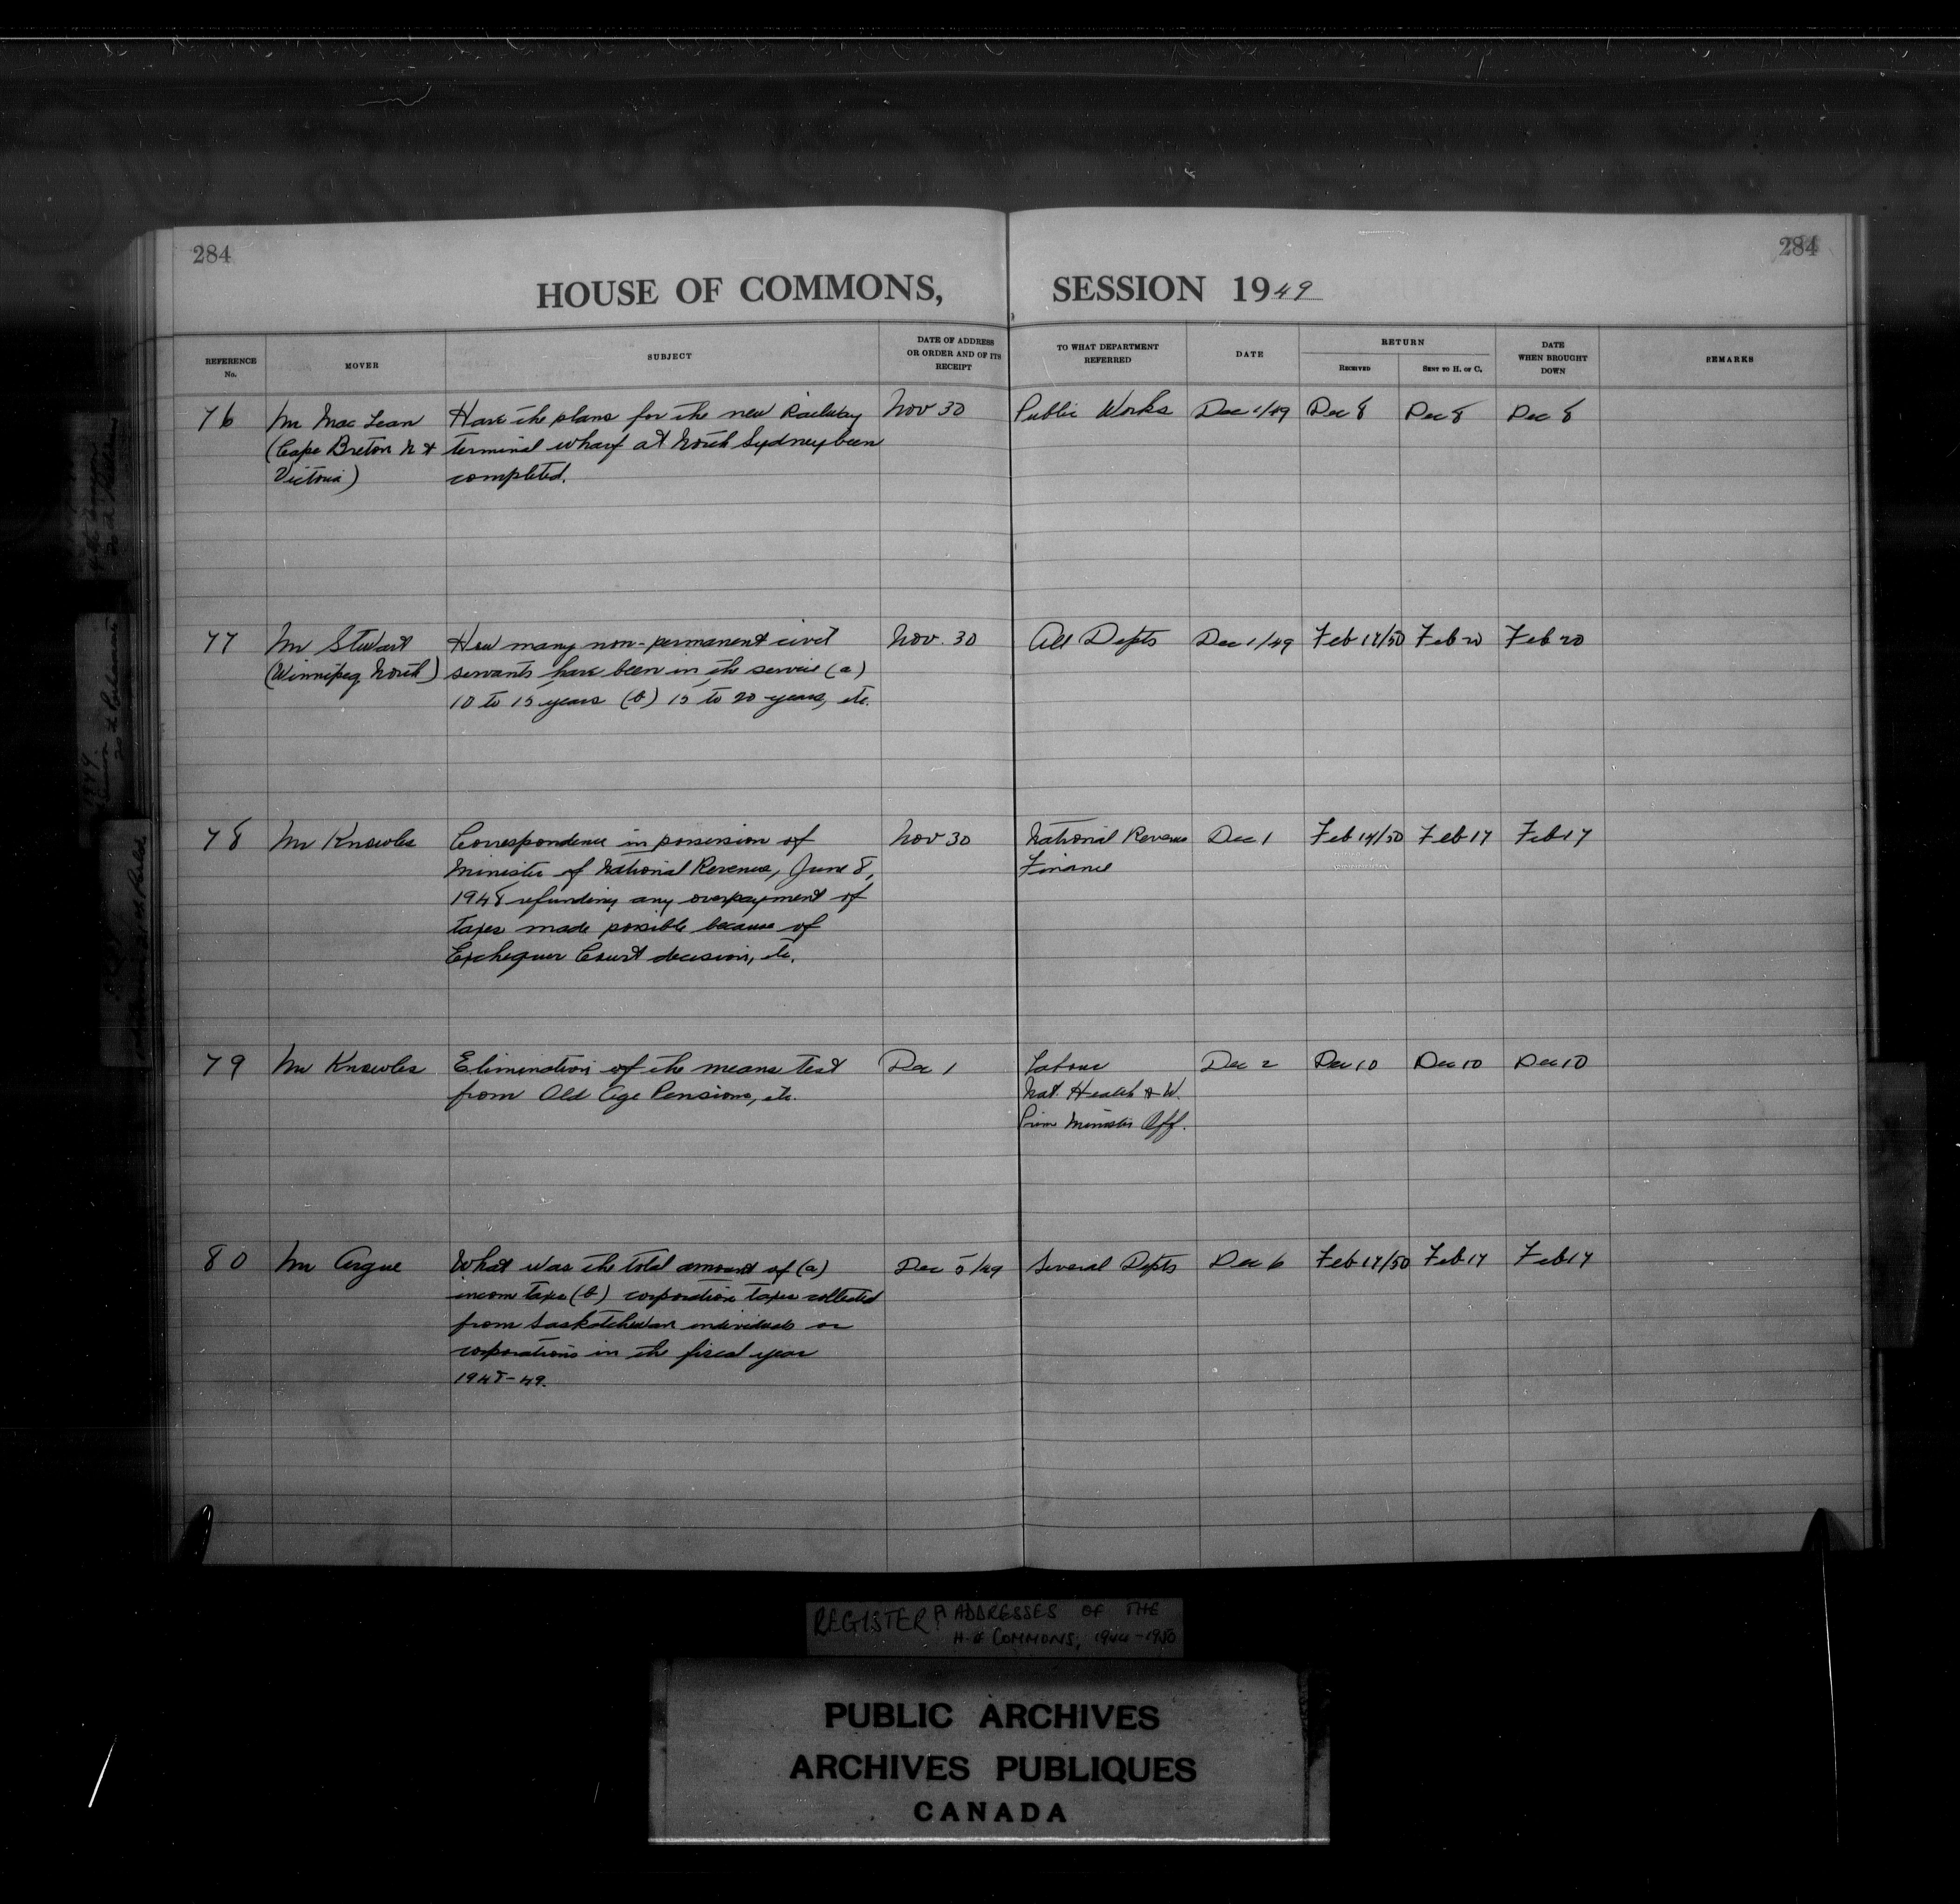 284
284
HOUSE OF COMMONS, SESSION 1949
REFERENCE No.
MOVER
SUBJECT
DATE OF ADDRESS OR ORDER AND OF ITS RECEIPT
TO WHAT DEPARTMENT REFERRED
DATE
RETURN
RECEIVED
SENT TO H. OF C.
DATE WHEN BROUGHT DOWN
REMARKS
76 Mr MacLean Have the plans for the new Railway Nov 30 Public Works Dec 1/49 Dec 8 Dec 8 Dec 8
(Cape Breton N & terminal wharf at North Sydney been
Victoria) completed.
77 Mr Stewart How many non-permanent civil Nov. 30 All Depts Dec 1/49 Feb 17/50 Feb 20 Feb 20
(Winnipeg North) servants have been in the service (a)
10 to 15 years (b) 15 to 20 years, etc.
78 Mr Knowles Correspondence in possession of Nov 30 National Revenue Dec 1 Feb 14/50 Feb 17 Feb 17
Minister of National Revenue, June 8, Finance
1948 refunding any overpayment of
taxes made possible because of
Exchequer Court decision, etc.
79 Mr Knowles Elimination of the means test Dec 1 Labour Dec 2 Dec 10 Dec 10 Dec 10
from Old Age Pensions, etc. Nat. Health & W.
Prime Minister Off.
80 Mr Argue What was the total amount of (a) Dec 5/49 Several Depts Dec 6 Feb 17/50 Feb 17 Feb 17
income taxes (b) corporation taxes collected
from Saskatchewan individuals or
corporations in the fiscal year
1948-49.
REGISTER ADDRESSES OF THE
H. of COMMONS, 1944-1950
PUBLIC ARCHIVES
ARCHIVES PUBLIQUES
CANADA